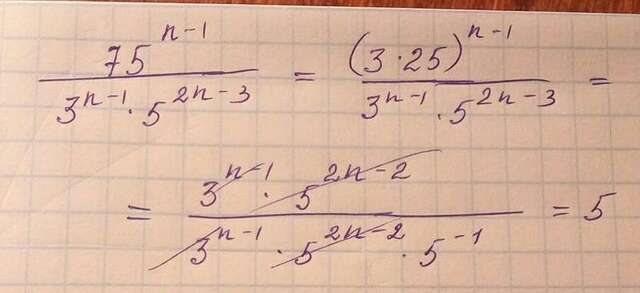 75^{n-1} / (3^{n-1} · 5^{2n-3}) = (3·25)^{n-1} / (3^{n-1} · 5^{2n-3}) =
= (3^{n-1} · 5^{2n-2}) / (3^{n-1} · 5^{2n-2} · 5^{-1}) = 5